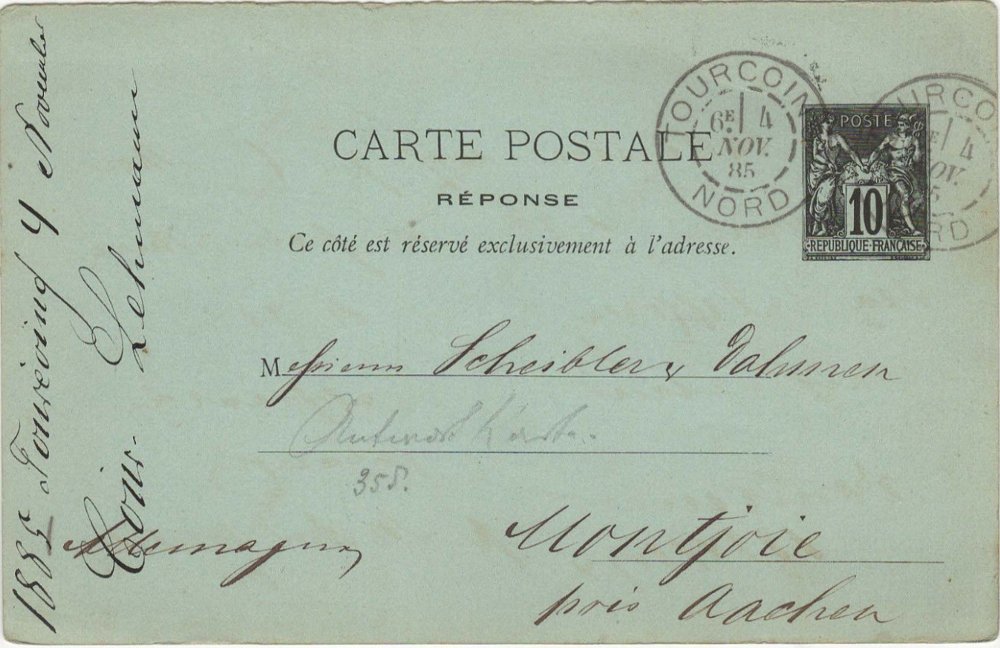 CARTE POSTALE
RÉPONSE
Ce côté est réservé exclusivement à l'adresse.
TOURCOING
6E 4
NOV.
85
NORD
POSTE
10
RÉPUBLIQUE FRANÇAISE
TOURCO
E 4
NOV.
5
RD
Messieurs Scheibler & Dahmen
Antwort Karte.
358.
Montjoie
près Aachen
Allemagne
1885 Tourcoing 4 November
Lehmann